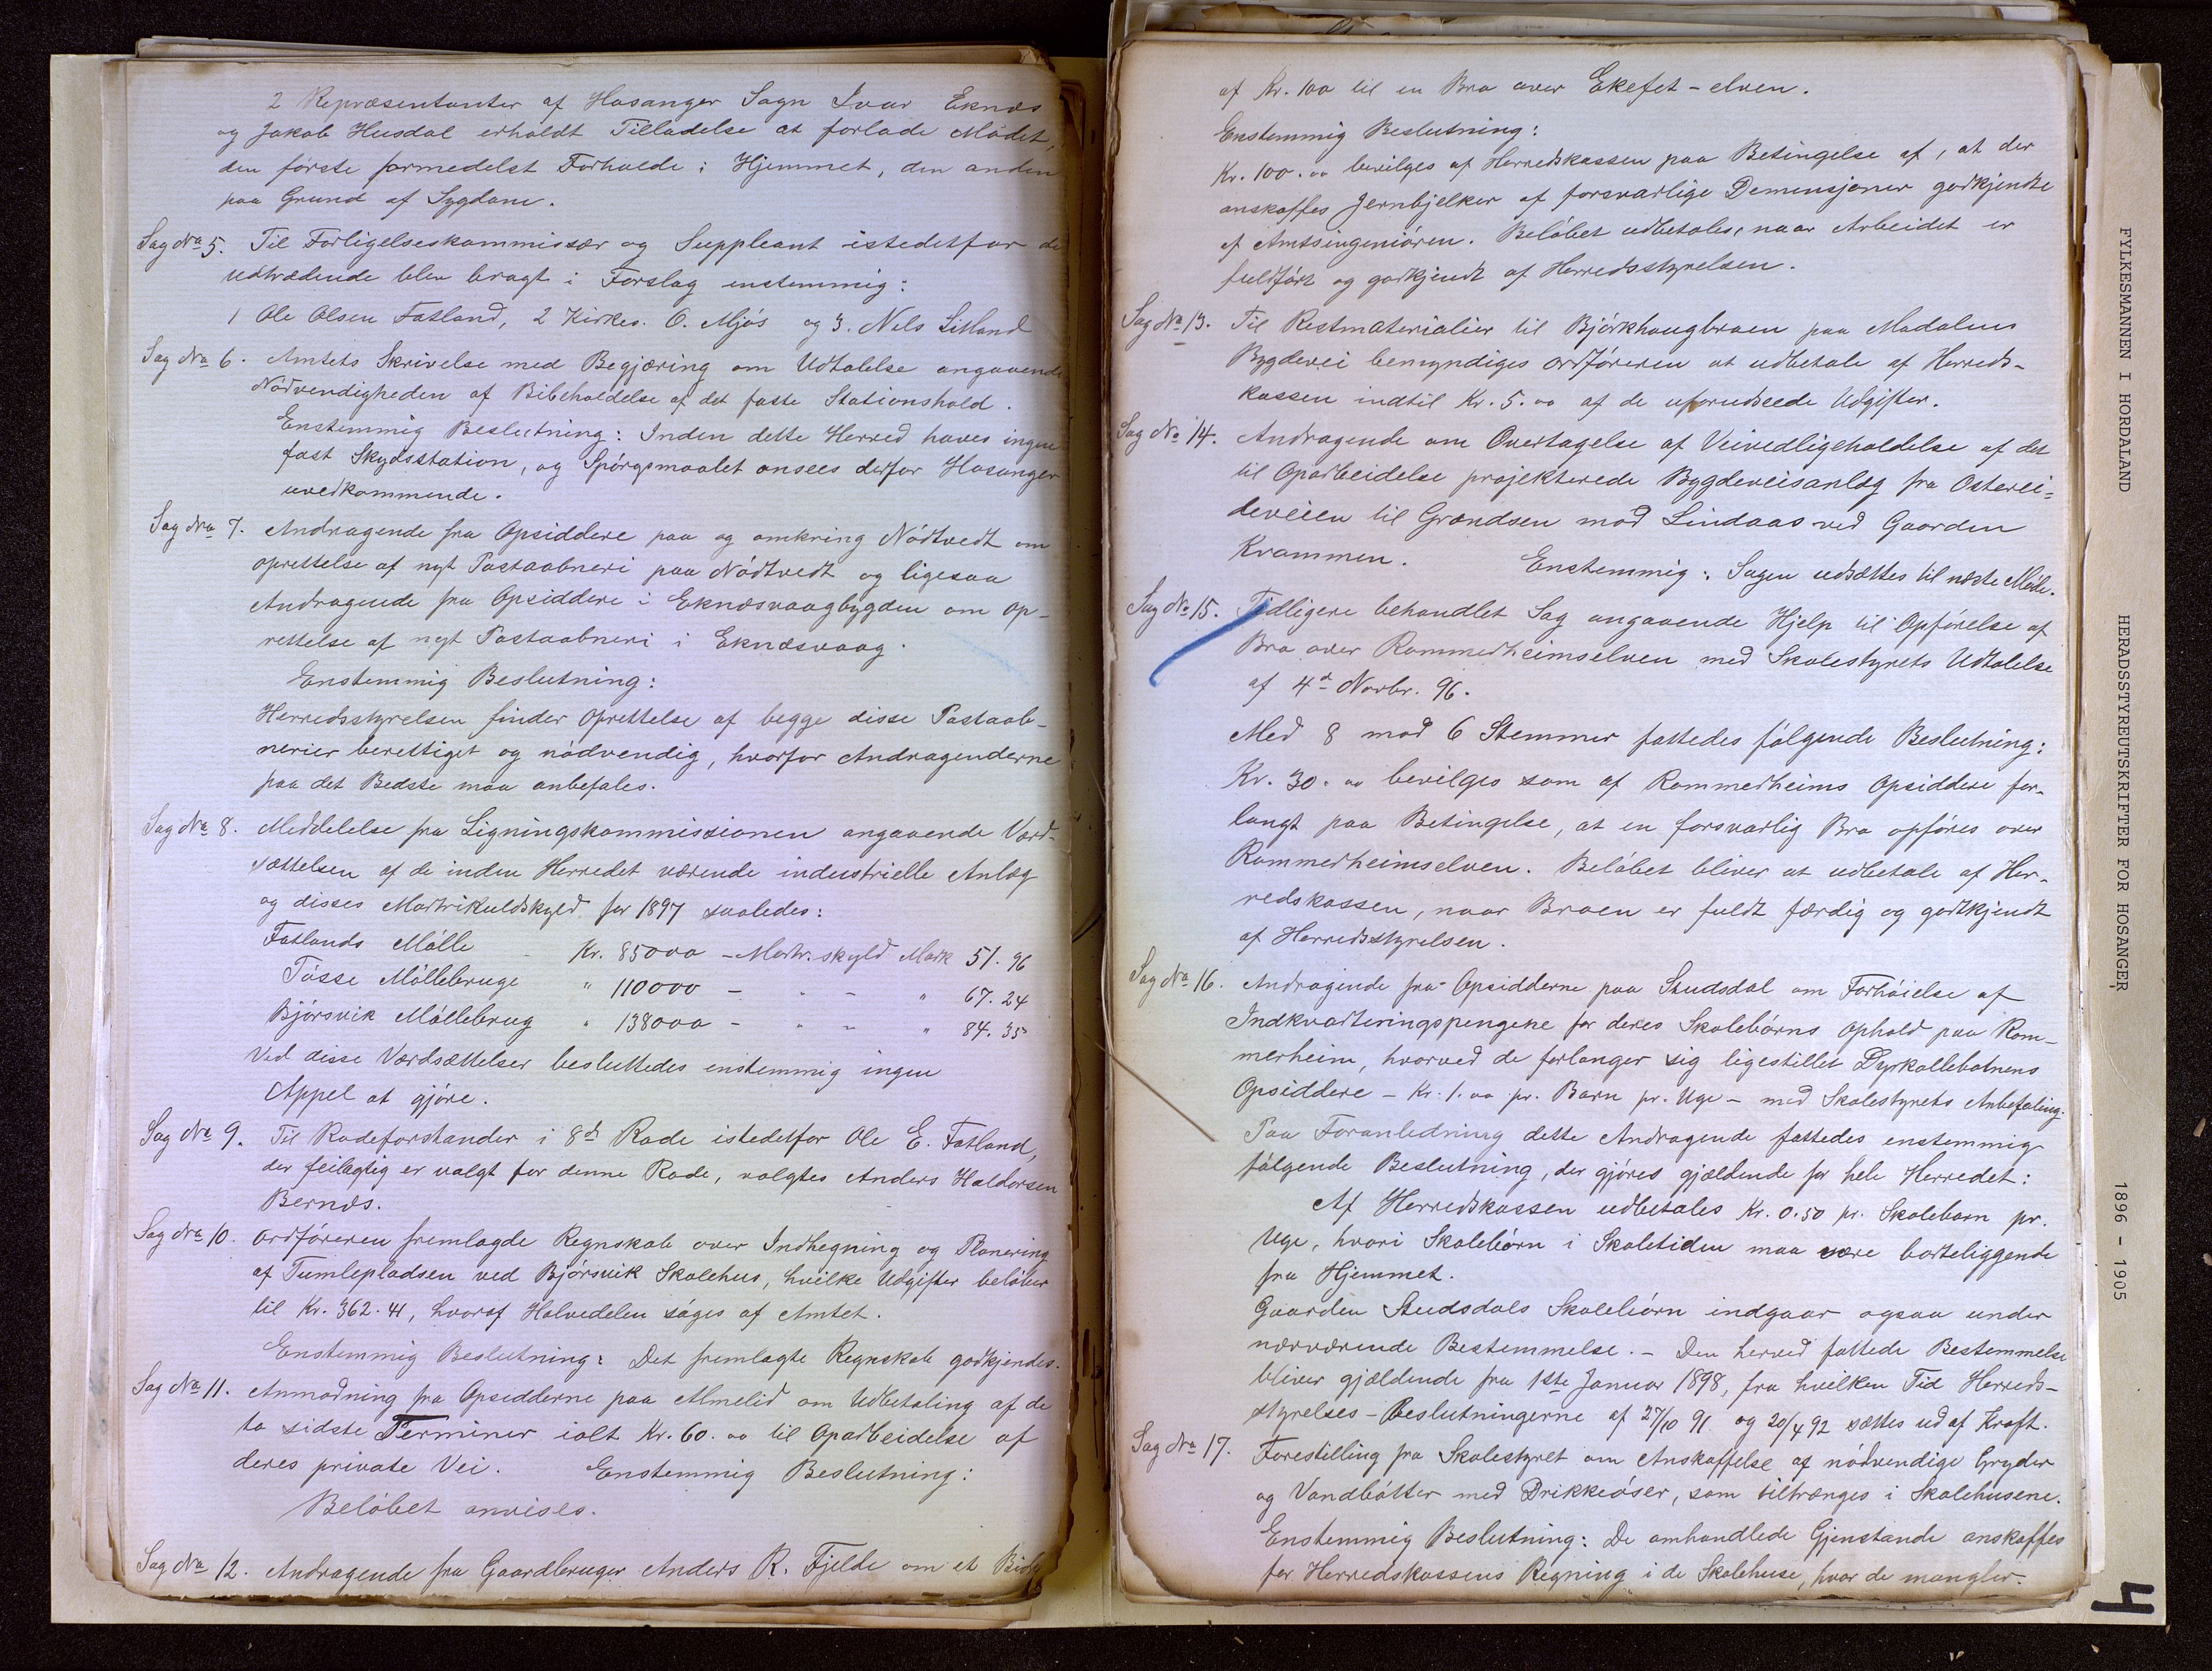 2 Repræsentanter af Hosanger Sogn Ivar Eknæs
og Jakob Husdal erholdt Tilladelse at forlade Mødet,
den første formedelst Forholde i Hjemmet, den anden
paa Grund af Sygdom.
Sag No 5. Til Forligelseskommissær og Suppleant istedetfor de
udtrædende blev bragt i Forslag enstemmig:
1 Ole Olsen Fatland, 2 Kirkes. O. Mjøs og 3. Nels Litland
Sag No 6. Amtets Skrivelse med Begjæring om Udtalelse angaaende
Nødvendigheden af Bibeholdelse af det faste Stationshold.
Enstemmig Beslutning: Inden dette Herred haves ingen
fast Skydsstation, og Spørgsmaalet ansees derfor Hosanger
uvedkommende.
Sag No 7. Andragende fra Opsiddere paa og omkring Nødtvedt om
oprettelse af nyt Postaabneri paa Nødtvedt og ligesaa
Andragende fra Opsiddere i Eknæsvaagbygden om Op-
rettelse af nyt Postaabneri i Eknæsvaag.
Enstemmig Beslutning:
Herredsstyrelsen finder Oprettelse af begge disse Postaab-
nerier berettiget og nødvendig, hvorfor Andragenderne
paa det Bedste maa anbefales.
Sag No 8. Meddelelse fra Ligningskommissionen angaaende Værd-
sættelsen af de inden Herredet værende industrielle Anlæg
og disses Martrikuldskyld for 1897 saaledes:
Fatlands Mølle - Kr. 85000 - Martr. skyld Mark 51. 96
Tøsse Møllebruge " 110000 - " - " 67. 24
Bjørsvik Møllebrug " 138000 - " - " 84. 35
Ved disse Værdsættelser besluttedes enstemmig ingen
Appel at gjøre.
Sag No 9. Til Rodeforstander i 8d Rode istedetfor Ole E. Fatland,
der feilagtig er valgt for denne Rode, valgtes Anders Haldorsen
Bernæs.
Sag No 10. Ordføreren fremlagde Regnskab over Indhegning og Planering
af Tumlepladsen ved Bjørsvik Skolehus, hvilke Udgifter beløber
til Kr. 362. 41, hvoraf Halvedelen søges af Amtet.
Enstemmig Beslutning: Det fremlagte Regnskab godkjendes.
Sag No 11. Anmodning fra Opsidderne paa Almelid om Udbetaling af de
to sidste Terminer ialt Kr. 60. 00 til Oparbeidelse af
deres private Vei. Enstemmig Beslutning:
Beløbet anvises.
Sag No 12. Andragende fra Gaardbruger Anders R. Fjelde om et Bidr
af Kr. 100 til en Bro over Ekefet-elven.
Enstemmig Beslutning:
Kr. 100. 00 bevilges af Herredskassen paa Betingelse af, at der
anskaffes Jernbjelker af forsvarlige Demensjoner godkjendte
af Amtsingeniøren. Beløbet udbetales, naar Arbeidet er
fuldført og godkjendt af Herredsstyrelsen.
Sag No 13. Til Restmaterialier til Bjørkhaugbroen paa Madalens
Bygdevei bemyndiges ordføreren at udbetale af Herreds-
kassen indtil Kr. 5. 00 af de uforudseede Udgifter.
Sag No 14. Andragende om Overtagelse af Veivedligeholdelse af det
til Oparbeidelse projekterede Bygdeveisanlæg fra Osterei-
deveien til Grændsen mod Lindaas ved Gaarden
Kvammen. Enstemmig: Sagen udsættes til næste Møde.
Sag No 15. Tidligere behandlet Sag angaaende Hjelp til Opførelse af
Bro over Rommerheimselven med Skolestyrets Udtalelse
af 4d Novbr. 96.
Med 8 mod 6 Stemmer fattedes følgende Beslutning:
Kr. 30. 00 bevilges som af Rommerheims Opsiddere for-
langt paa Betingelse, at en forsvarlig Bro opføres over
Rommerheimselven. Beløbet bliver at udbetale af Her-
redskassen, naar Broen er fuldt færdig og godtkjendt
af Herredsstyrelsen.
Sag No 16. Andragende fra Opsidderne paa Studsdal om Forhøielse af
Indkvarteringspengene for deres Skolebørns Ophold paa Rom-
merheim, hvorved de forlanger sig ligestillet Dyrkollebotnens
Opsiddere - Kr. 1. 00 pr. Barn pr. Uge - med Skolestyrets Anbefaling.
Paa Foranledning dette Andragende fattedes enstemmig
følgende Beslutning, der gjøres gjældende for hele Herredet:
Af Herredskassen udbetales Kr. 0.50 pr. Skolebarn pr.
Uge, hvori Skolebørn i Skoletiden maa være borteliggende
fra Hjemmet.
Gaarden Studsdals Skolebørn indgaar ogsaa under
nærværende Bestemmelse. - Den herved fattede Bestemmelse
bliver gjældende fra 1ste Januar 1898, fra hvilken Tid Herreds-
styrelses-Beslutningerne af 27/10 91 og 20/4 92 sættes ud af Kraft.
Sag No 17. Forestilling fra Skolestyret om Anskaffelse af nødvendige Gryder
og Vandbøtter med Drikkeøser, som tiltrænges i Skolehusene.
Enstemmig Beslutning: De omhandlede Gjenstande anskaffes
for Herredskassens Regning i de Skolehuse, hvor de mangler.
FYLKESMANNEN I HORDALAND HERADSSTYREUTSKRIFTER FOR HOSANGER 1896 - 1905
4